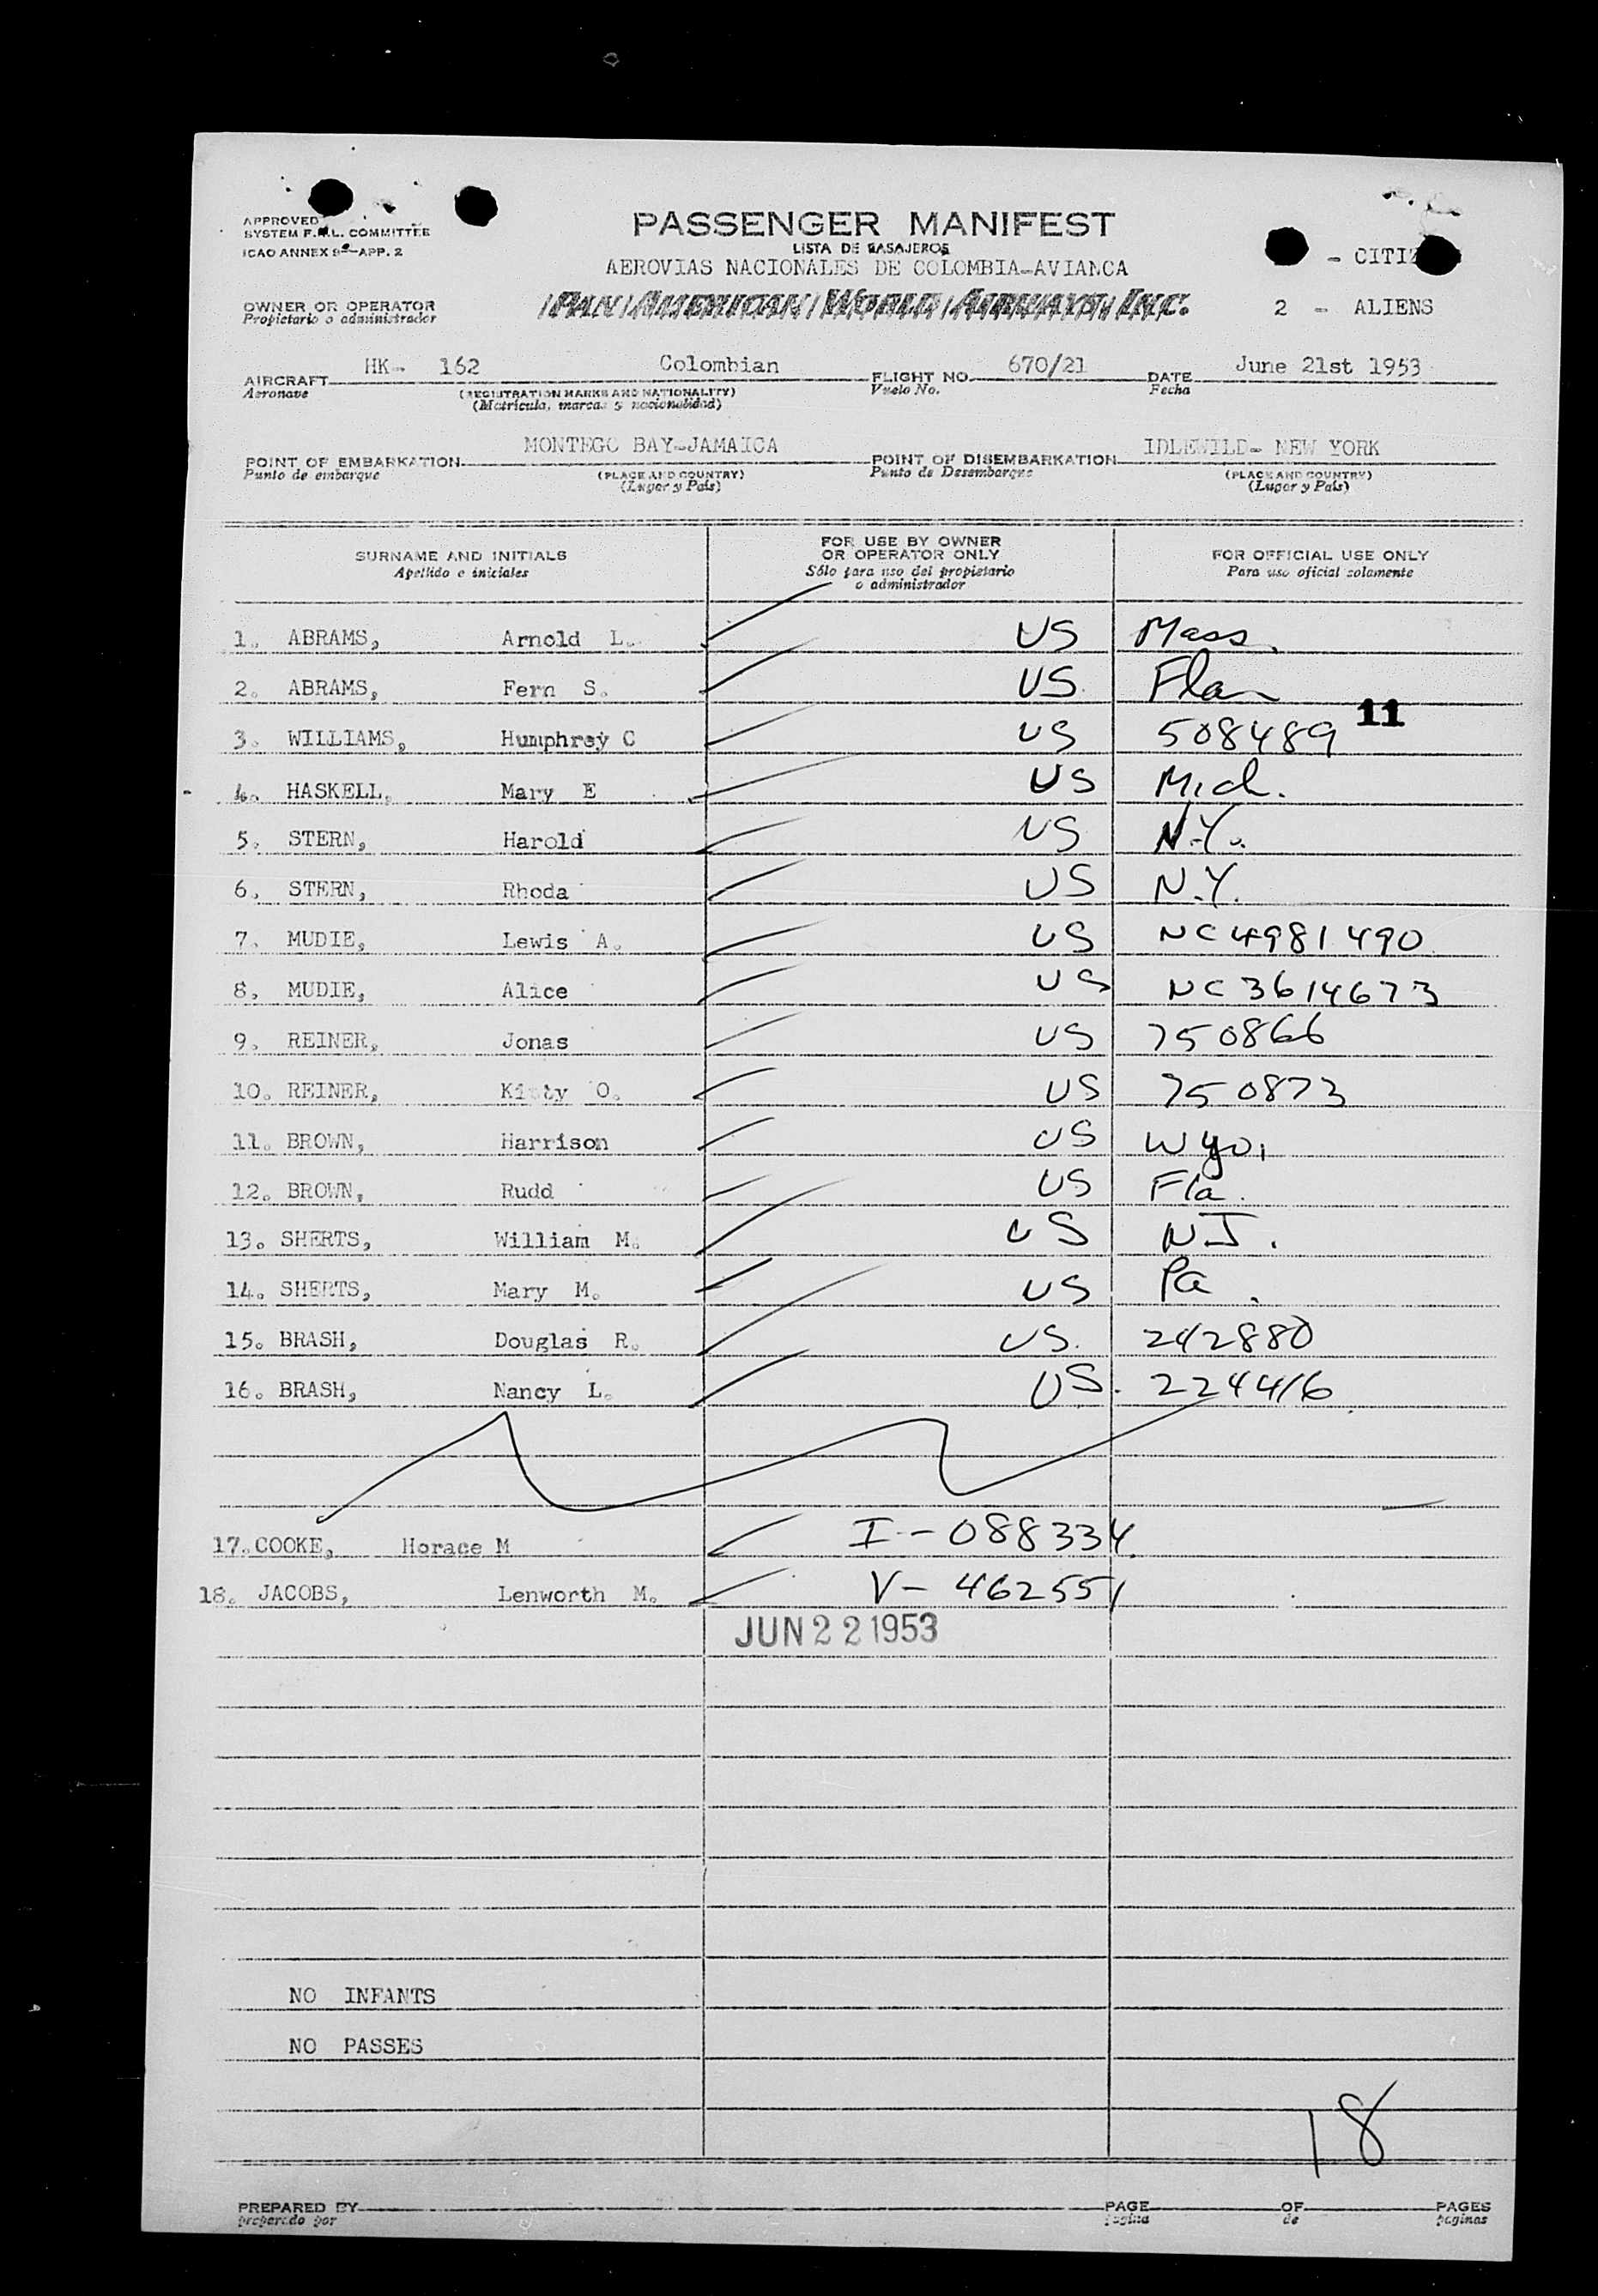 PASSENGER MANIFEST
LISTA DE PASAJEROS
APPROVED
SYSTEM F.A.L. COMMITTEE
ICAO ANNEX 9—APP. 2
AEROVIAS NACIONALES DE COLOMBIA-AVIANCA
- CITIZ
OWNER OR OPERATOR
Propietario o administrador
PAN AMERICAN WORLD AIRWAYS INC.
2 - ALIENS
AIRCRAFT HK- 162 Colombian FLIGHT NO. 670/21 DATE June 21st 1953
Aeronave (REGISTRATION MARKS AND NATIONALITY) Vuelo No. Fecha
(Matrícula, marcas y nacionalidad)
POINT OF EMBARKATION MONTEGO BAY-JAMAICA POINT OF DISEMBARKATION IDLEWILD- NEW YORK
Punto de embarque (PLACE AND COUNTRY) Punto de Desembarque (PLACE AND COUNTRY)
(Lugar y País) (Lugar y País)
SURNAME AND INITIALS
Apellido e iniciales
FOR USE BY OWNER
OR OPERATOR ONLY
Sólo para uso del propietario
o administrador
FOR OFFICIAL USE ONLY
Para uso oficial solamente
1. ABRAMS, Arnold L. US Mass.
2. ABRAMS, Fern S. US Fla
11
3. WILLIAMS, Humphrey C US 508489
4. HASKELL, Mary E US Mich.
5. STERN, Harold US N.Y.
6. STERN, Rhoda US N.Y.
7. MUDIE, Lewis A. US NC4981490
8. MUDIE, Alice US NC3614673
9. REINER, Jonas US 750866
10. REINER, Kitty O. US 750873
11. BROWN, Harrison US Wyo.
12. BROWN, Rudd US Fla.
13. SHERTS, William M. US N.J.
14. SHERTS, Mary M. US Pa.
15. BRASH, Douglas R. US. 242880
16. BRASH, Nancy L. US. 224416
17. COOKE, Horace M I-088334
18. JACOBS, Lenworth M. V-462551
JUN 22 1953
NO INFANTS
NO PASSES
18
PREPARED BY PAGE OF PAGES
preparado por página de páginas